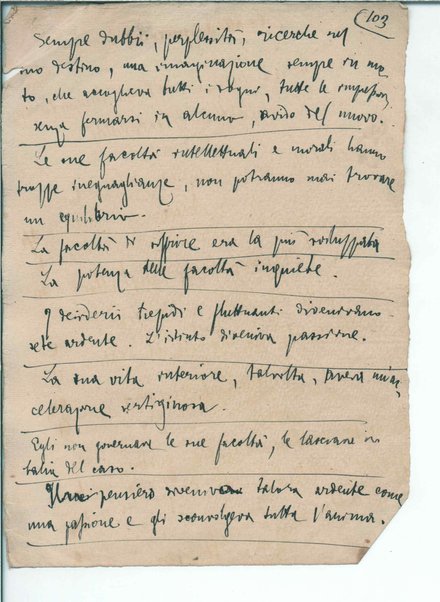 103
Sempre dubbii, perplessità, ricerche nel
suo destino, una imaginazione sempre in mo-
to, che accoglieva tutti i sogni, tutte le impressioni,
senza fermarsi in alcuno, avido del nuovo.
Le sue facoltà intellettuali e morali hanno
troppe ineguaglianze, non potranno mai trovare
un equilibrio.
La facoltà di soffrire era la più sviluppata
La potenza delle facoltà inquiete.
I desiderii trepidi e fluttuanti divenivano
sete ardente. L'istinto diveniva passione.
La sua vita interiore, talvolta, aveva un'ac-
celerazione vertiginosa.
Egli non governava le sue facoltà, le lasciava in
balìa del caso.
pensiero diveniva talora ardente come
una passione e gli sconvolgeva tutta l'anima.